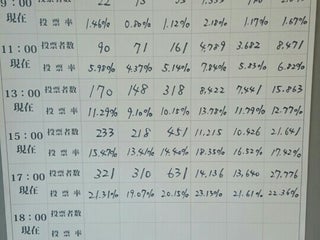 9:00 投票者数 22
現在 投票率 1.46% 0.80% 1.12% 2.18% 1.17% 1.67%
11:00 投票者数 90 71 161 4,789 3,682 8,471
現在 投票率 5.98% 4.37% 5.14% 7.84% 5.83% 6.82%
13:00 投票者数 170 148 318 8,422 7,441 15,863
現在 投票率 11.29% 9.10% 10.15% 13.78% 11.79% 12.77%
15:00 投票者数 233 218 451 11,215 10,426 21,641
現在 投票率 15.47% 13.41% 14.40% 18.35% 16.52% 17.42%
17:00 投票者数 321 310 631 14,136 13,640 27,776
現在 投票率 21.31% 19.07% 20.15% 23.13% 21.61% 22.36%
18:00 投票者数
現在 投票率